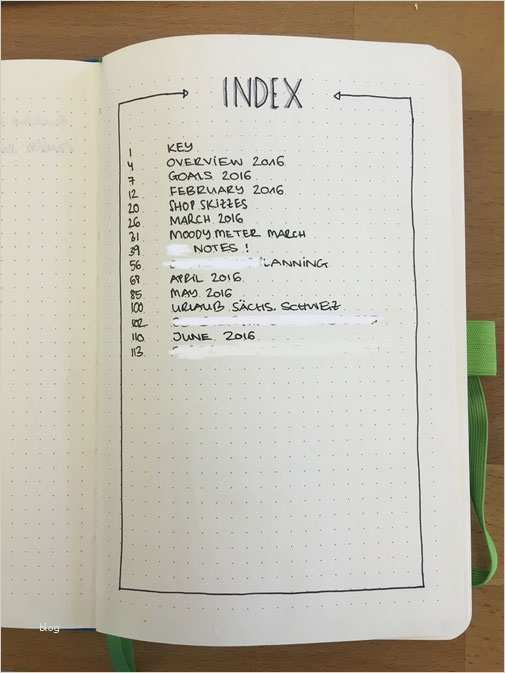 INDEX
1 KEY
4 OVERVIEW 2016
7 GOALS 2016
12 FEBRUARY 2016
20 SHOP SKIZZES
26 MARCH 2016
31 MOODY METER MARCH
39 NOTES !
56 LANNING
68 APRIL 2016
85 MAY 2016
100 URLAUB SÄCHS. SCHWEIZ
102
110 JUNE 2016
113
blog